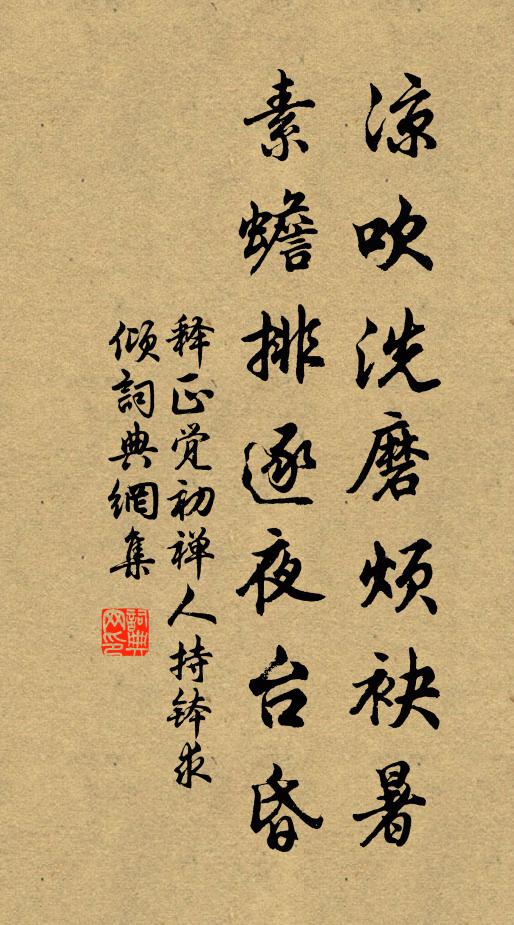 凉吹洗磨烦袂暑
素蟾排逐夜台昏
释正觉初禅人持钵求
倾詞典網集
詞典
网印